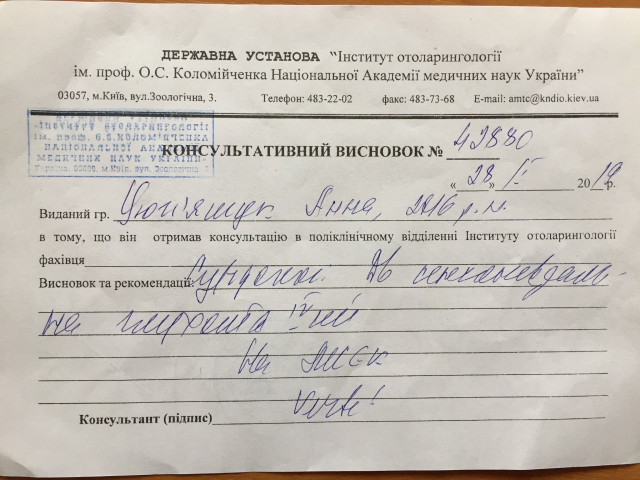 ДЕРЖАВНА УСТАНОВА "Інститут отоларингології
ім. проф. О.С. Коломійченка Національної Академії медичних наук України"
03057, м.Київ, вул.Зоологічна, 3. Телефон: 483-22-02 факс: 483-73-68 E-mail: amtc@kndio.kiev.ua
ДЕРЖАВНА УСТАНОВА
"ІНСТИТУТ ОТОЛАРИНГОЛОГІЇ
ім. проф. О.С.КОЛОМІЙЧЕНКА
НАЦІОНАЛЬНОЇ АКАДЕМІЇ
МЕДИЧНИХ НАУК УКРАЇНИ"
Україна, м.Київ, вул. Зоологічна 3
КОНСУЛЬТАТИВНИЙ ВИСНОВОК № 42880
"28" 2019р.
Виданий гр. Анна, 2016 р.н.
в тому, що він отримав консультацію в поліклінічному відділенні Інституту отоларингології
фахівця
Висновок та рекомендації: Сурдолог. Дв сенсоневраль-
на глухота IV
На ЛКК
Verte!
Консультант (підпис)